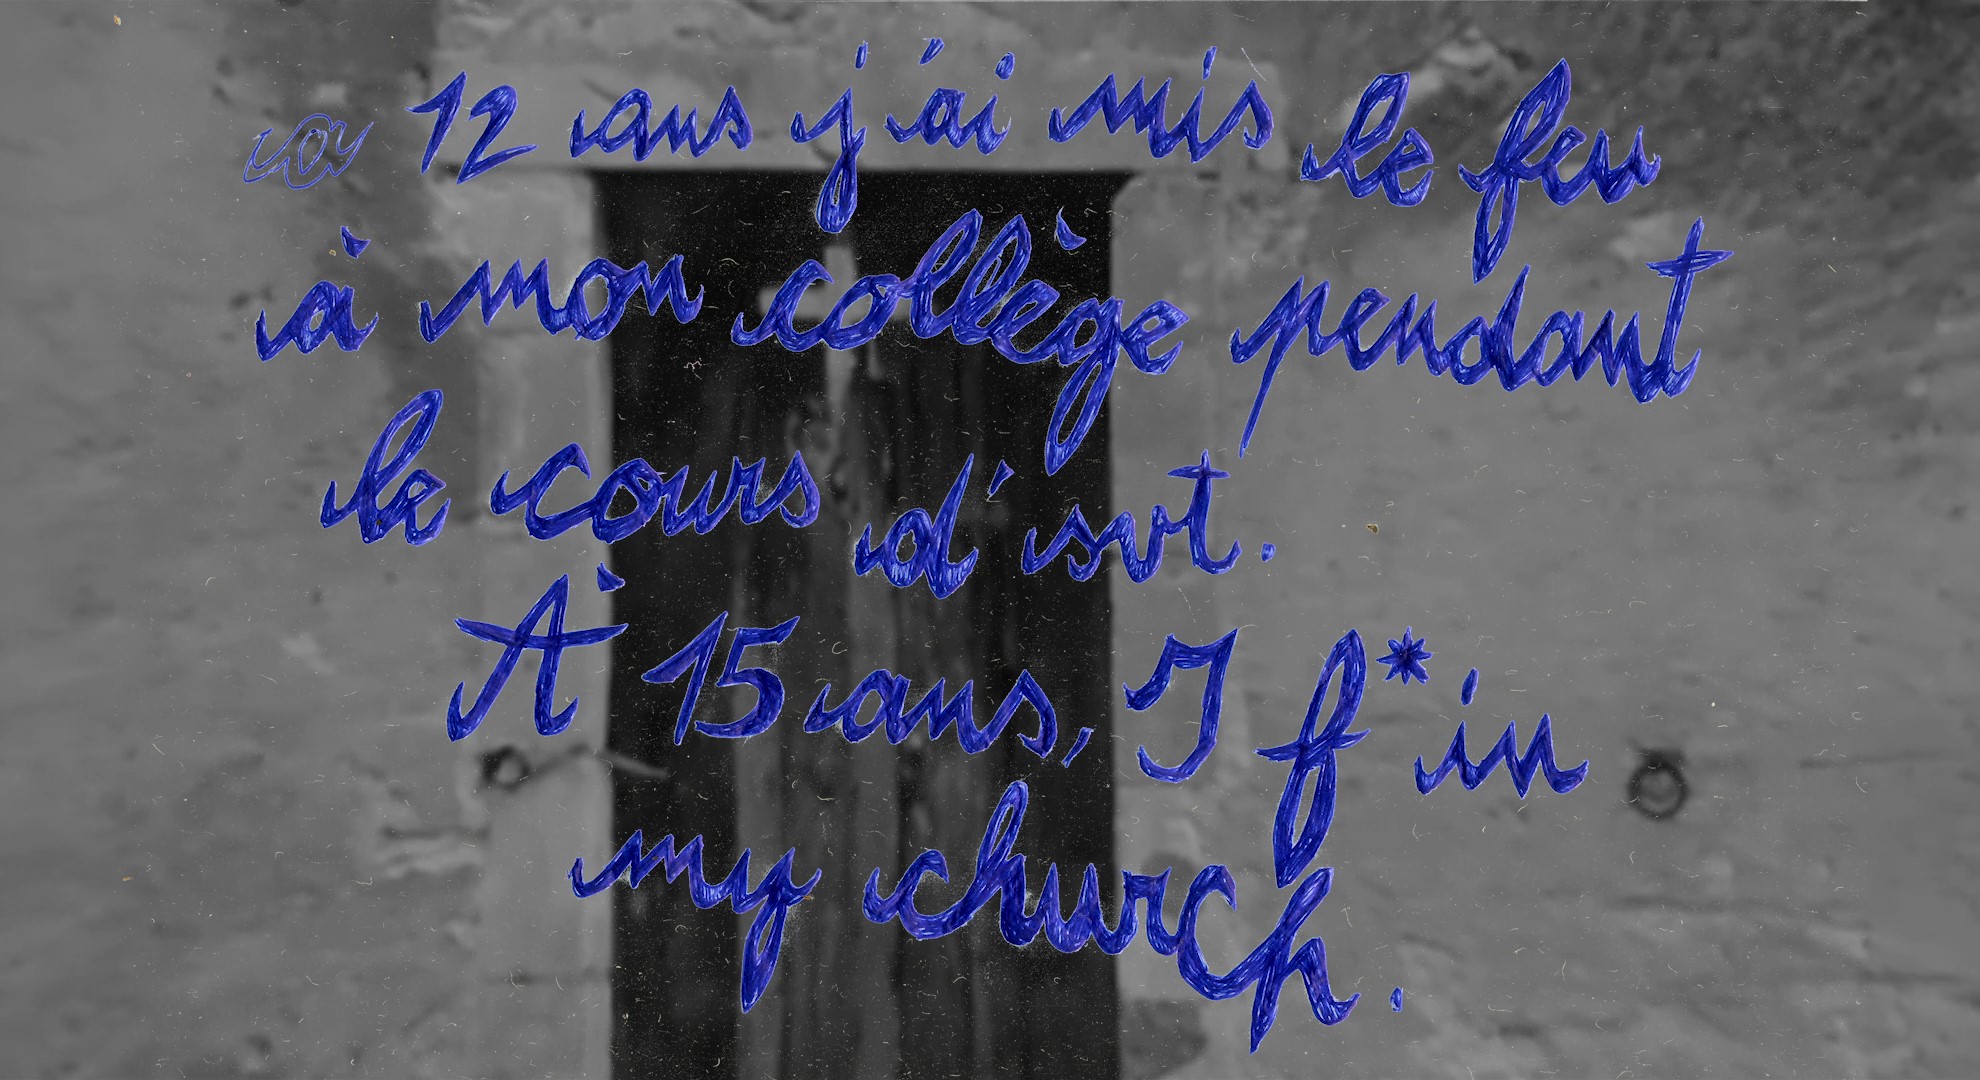 12 ans j'ai mis le feu
à mon collège pendant
le cours d'svt.
À 15 ans, I f* in
my church.